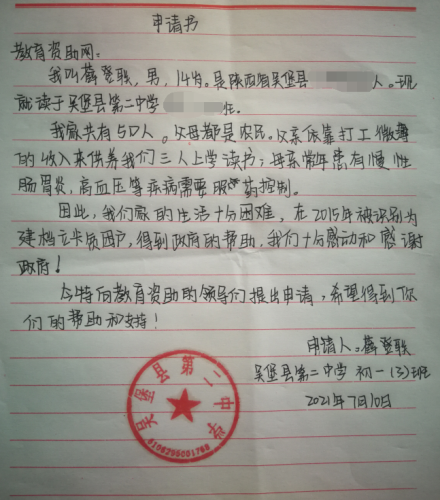 申请书
教育资助网:
我叫薛登联,男,14岁。是陕西省吴堡县人。现
就读于吴堡县第二中学
我家共有5口人。父母都是农民。父亲依靠打工微薄
的收入来供养我们三人上学读书;母亲常年患有慢性
肠胃炎,高血压等疾病需要服药控制。
因此,我们家的生活十分困难,在2015年被识别为
建档立卡贫困户,得到政府的帮助,我们十分感动和感谢
政府!
今特向教育资助的领导们提出申请,希望得到你
们的帮助和支持!
申请人:薛登联
吴堡县第二中学 初一(3)班
2021年7月10日
吴堡县第二中学